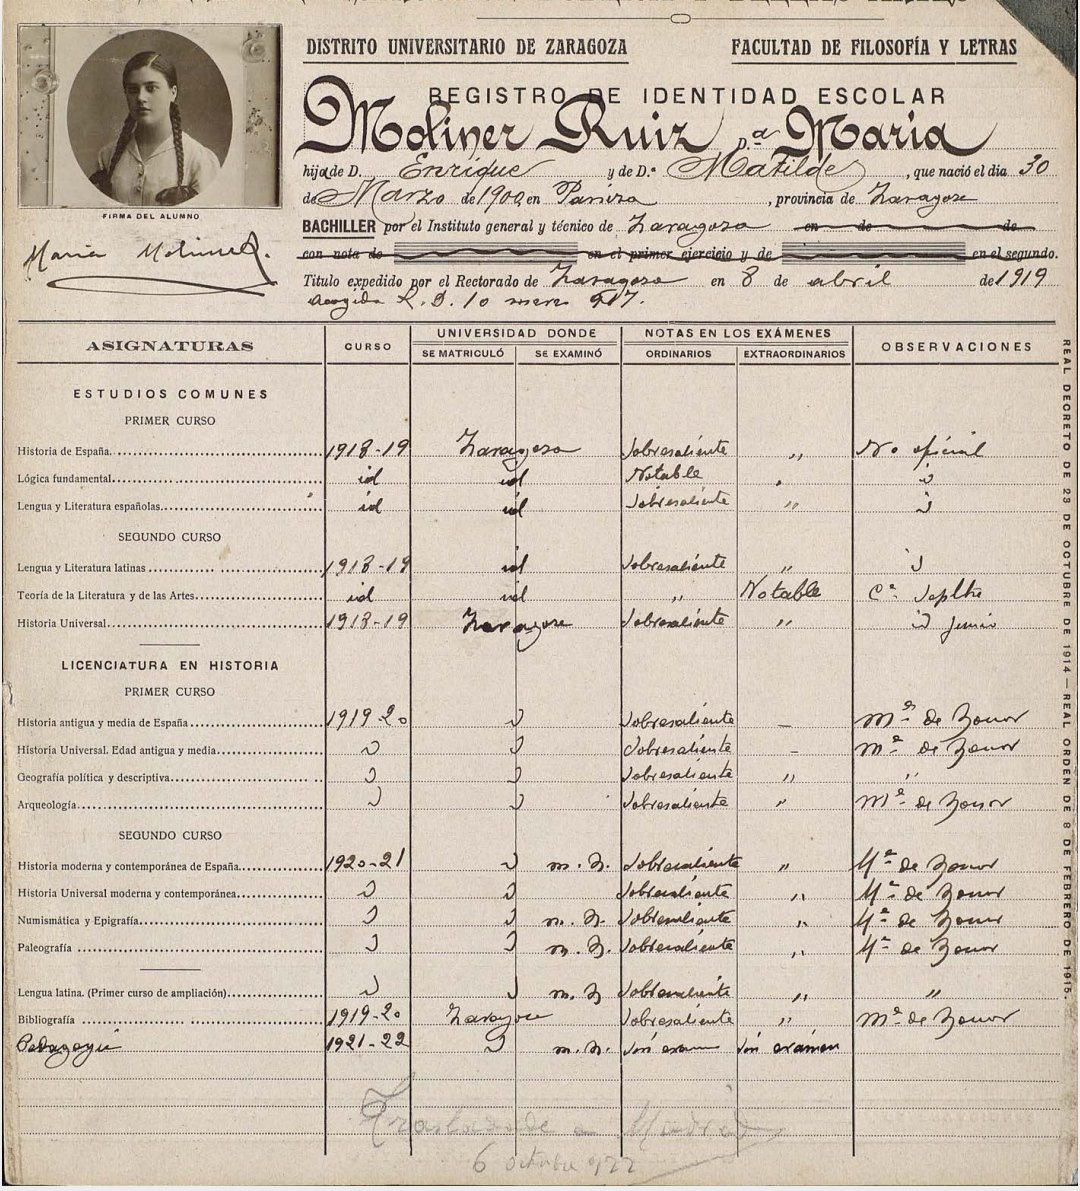 DISTRITO UNIVERSITARIO DE ZARAGOZA FACULTAD DE FILOSOFÍA Y LETRAS
REGISTRO DE IDENTIDAD ESCOLAR
Moliner Ruiz D.ª María
hija de D. Enrique y de D.ª Matilde, que nació el dia 30
de Marzo de 1900, en Paniza, provincia de Zaragoza
FIRMA DEL ALUMNO
María Moliner R.
BACHILLER por el Instituto general y técnico de Zaragoza en de de
con nota de en el primer ejercicio y de en el segundo.
Titulo expedido por el Rectorado de Zaragoza en 8 de abril de 1919
R. D. 10 917.
ASIGNATURAS CURSO UNIVERSIDAD DONDE NOTAS EN LOS EXÁMENES OBSERVACIONES
SE MATRICULÓ SE EXAMINÓ ORDINARIOS EXTRAORDINARIOS
ESTUDIOS COMUNES
PRIMER CURSO
Historia de España. 1918-19 Zaragoza Sobresaliente " No oficial
Lógica fundamental id id Notable "
Lengua y Literatura españolas id id Sobresaliente "
SEGUNDO CURSO
Lengua y Literatura latinas 1918-19 id Sobresaliente "
Teoría de la Literatura y de las Artes id id " Notable
Historia Universal 1918-19 Zaragoza Sobresaliente " junio
LICENCIATURA EN HISTORIA
PRIMER CURSO
Historia antigua y media de España 1919-20 Sobresaliente - Mª de Honor
Historia Universal. Edad antigua y media Sobresaliente - Mª de Honor
Geografía política y descriptiva Sobresaliente " "
Arqueología Sobresaliente " Mª de Honor
SEGUNDO CURSO
Historia moderna y contemporánea de España 1920-21 Sobresaliente " Mª de Honor
Historia Universal moderna y contemporánea Sobresaliente " Mª de Honor
Numismática y Epigrafía Sobresaliente " Mª de Honor
Paleografía Sobresaliente " Mª de Honor
Lengua latina. (Primer curso de ampliación) Sobresaliente " "
Bibliografía 1919-20 Zaragoza Sobresaliente " Mª de Honor
Pedagogía 1921-22 Sin exámen Sin exámen
Trasladada a Madrid
6 Octubre 922
REAL DECRETO DE 23 DE OCTUBRE DE 1914 — REAL ORDEN DE 8 DE FEBRERO DE 1915.